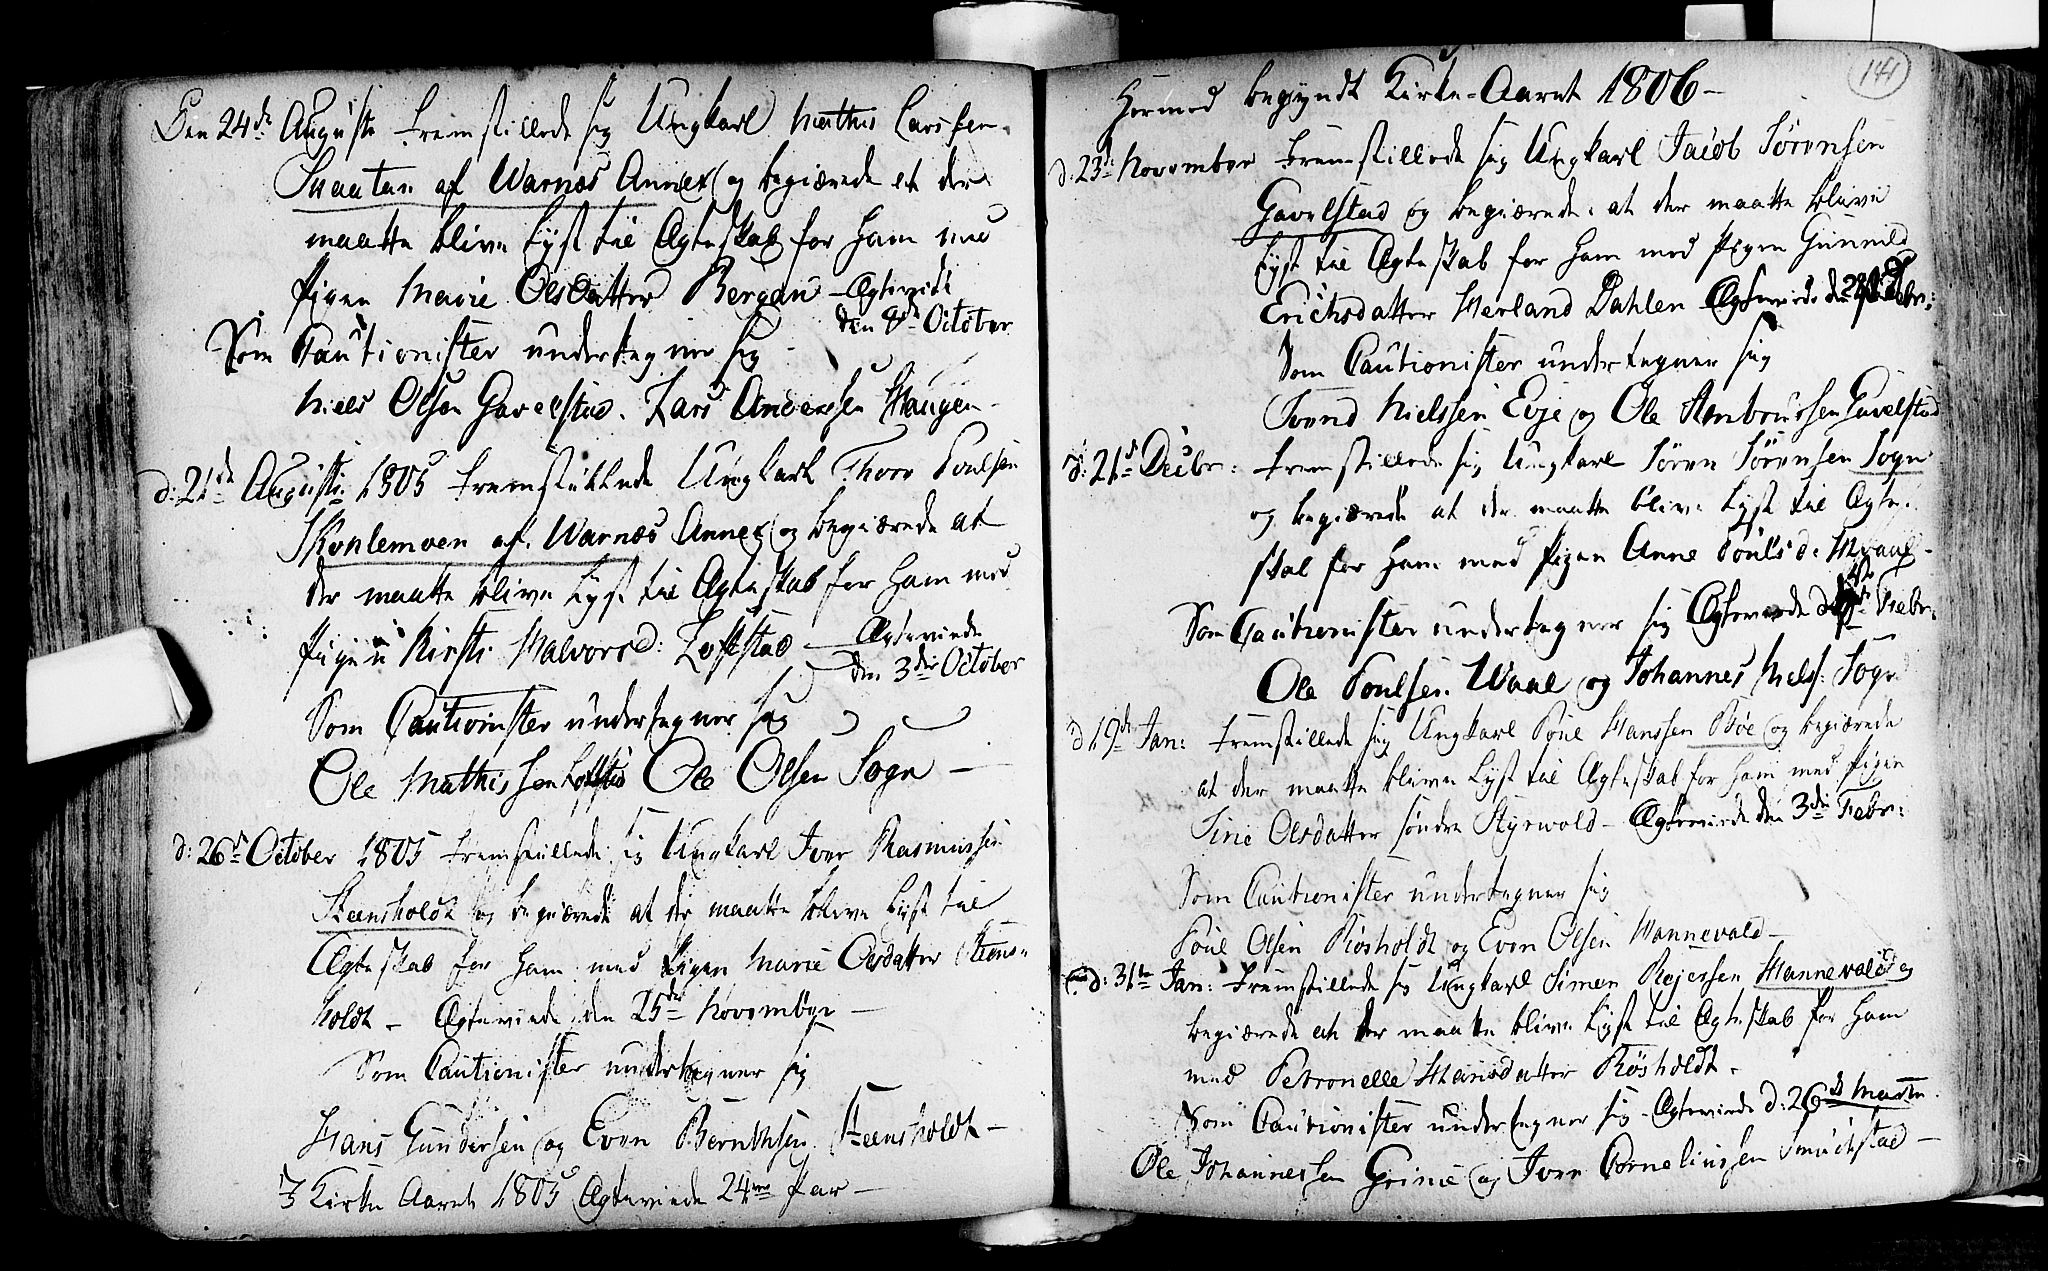 Den 24de Augusti fremstillede sig Ungkarl Mathis Larssen
Skaatan af Warnæs Annex og begiærede at der
maatte blive Lyst til Ægteskab for Ham med
Pigen Marie Olsdatter Bergan – Ægteviede
den 8de October
Som Cautionister undertegner sig
Niels Olsen Gavelstad. Lars Andersen Haugen
d: 21de Augusti 1805 fremstillede Ungkarl Thore Poulsen
af Warnæs Annex og begiærede at
der maatte blive Lyst til Ægteskab for Ham med
Pigen Kirsti Halvorsd: Løfstad – Ægteviede
den 3die October
Som Cautionister undertegner sig
Ole Mathissen Løfstad Ole Olsen Sogn –
d: 26de October 1805 fremstillede sig Ungkarl Iver Rasmussen
Steensholdt og begiærede at der maatte blive Lyst til
Ægteskab for Ham med Pigen Marie Olsdatter Steens-
holdt – Ægteviede den 25de Novembr –
Som Cautionister undertegner sig
Hans Gundersen og Even Bernthsen Steensholdt –
I Kirke Aaret 1805 Ægteviede 24ve Par –
141
Hermed begyndt Kirke-Aaret 1806 –
d: 23de November fremstillede sig Ungkarl Jacob Sørensen
Gavelstad og begiærede at der maatte blive
Lyst til Ægteskab for Ham med Pigen Gunnild
Erichsdatter Herland Dahlen Ægteviede den
Som Cautionister undertegner sig
Svend Nielssen Evje og Ole Ambrussen Gavelstad
d: 21de Decbr: fremstillede sig Ungkarl Søren Sørensen Sogn
og begiærede at der maatte blive Lyst til Ægte-
skab for Ham med Pigen Anne Poulsd: Hvaal –
Som Cautionister undertegner sig Ægteviede d Febr:
Ole Poulsen Waal og Johannes Niels: Sogn
d 19de Jan: fremstillede sig Ungkarl Poul Hanssen Bøe og begiærede
at der maatte blive Lyst til Ægteskab for Ham med Pigen
Sirie Olsdatter søndre Styrvold – Ægteviede den 3die Febr:
Som Cautionister undertegner sig
Poul Olsen Røsholdt og Even Olsen Hannevald –
d: 31te Jan: fremstillede sig Ungkarl Simen Rejersen Hannevald og
begiærede at der maatte blive Lyst til Ægteskab for Ham
med Petronelle Hansdatter Røsholdt –
Som Cautionister undertegner sig – Ægteviede d: 26de Martii
Ole Johannessen Grime og Iver Cornelinssen Smuchstad –